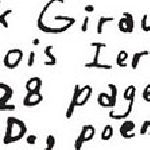 x Girau
ois Ier
28 page
D., poèm